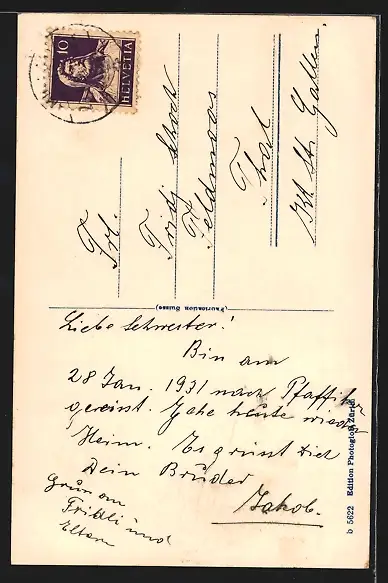 Liebe Schwester!
Bin am
28 Jan. 1931 nach Pfaffik
gereist. Gehe heute wieder
Heim. Es grüsst Dich
Dein Brüder
Jakob.
Gruss an
Fridli und
Eltern
Frl.
Fridj Schoch
Feldmoos
Thal
Kt. St. Gallen.
10
HELVETIA
(Fabrication Suisse)
b 5622 Edition Photoglob Zürich